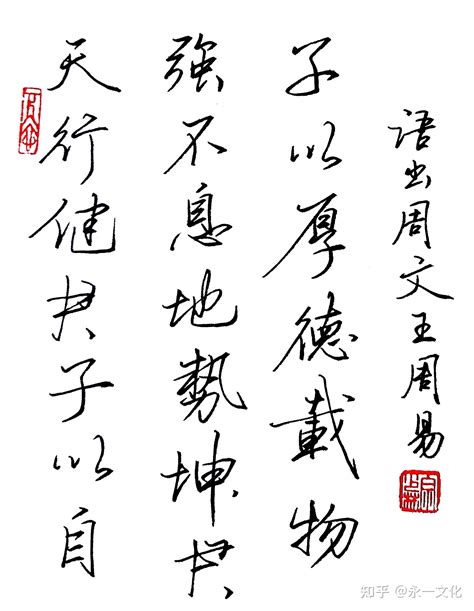 天行健君子以自
強不息地勢坤君
子以厚德載物
语出周文王周易
知乎 @永一文化